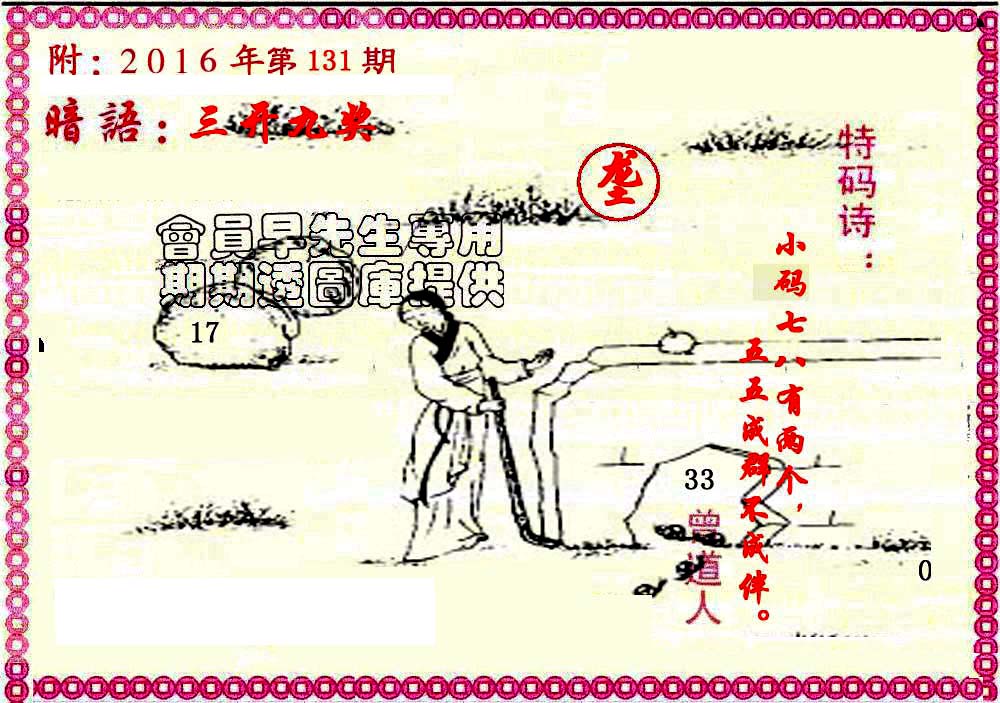 附：2016年第131期
暗語：三开九奖
垄
特码诗：
小码七八有两个，
五五成群不成伴。
會員早先生專用
期期透圖庫提供
17
33
曾道人
0